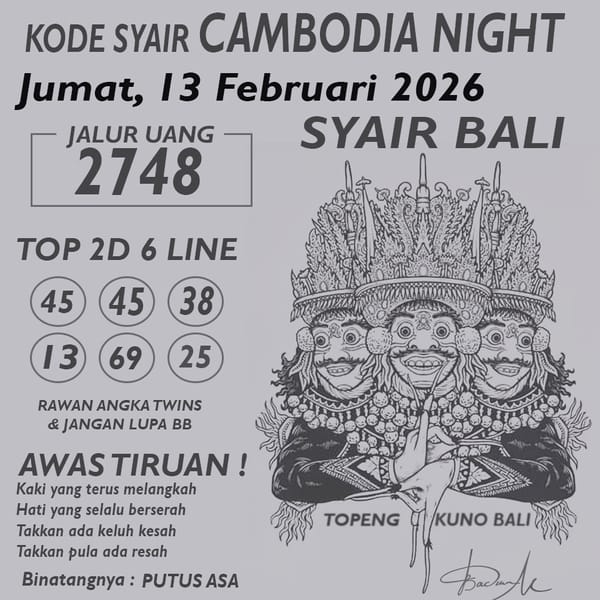 KODE SYAIR CAMBODIA NIGHT
Jumat, 13 Februari 2026
JALUR UANG
2748
SYAIR BALI
TOP 2D 6 LINE
45 45 38
13 69 25
RAWAN ANGKA TWINS
& JANGAN LUPA BB
AWAS TIRUAN !
Kaki yang terus melangkah
Hati yang selalu berserah
Takkan ada keluh kesah
Takkan pula ada resah
Binatangnya : PUTUS ASA
TOPENG KUNO BALI